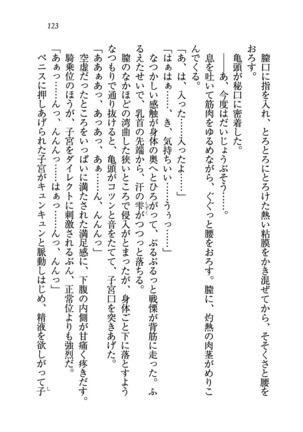 123
膣口に指を入れ、とろとろにとろけた熱い粘膜をかき混ぜてから、そそくさと腰を
おろす。
――あ、今度はだいじょうぶそう……。
亀頭が秘口に密着した。
息を吐いて筋肉をゆるめながら、くぐっと腰をおろす。膣に、灼熱の肉茎がめりこ
んでくる。
「あ、は、入った……入ったよ……」
「はぁはぁ……き、気持ちいい……うぅっ……」
なつかしい感触が身体の奥へとひろがって、ぶるぶるっと戦慄が背筋に走った。ふ
るえたせいで、乳首の先端から、汗の雫がつつっと落ちる。
膣のなかほどの湾曲した狭いところで侵入がとまったが、身体ごと下に落とすよう
なつもりで通り抜けると、亀頭がコツンと音をたてて、子宮口を突きあげた。
「ああぁあっ、うっ、あぁあ……ん、んんんっ」
空虚だったところをいっぱいに満たされた満足感に、下腹の内側が甘痛く疼きだす。
騎乗位のほうが、子宮をダイレクトに刺激されるぶん、正常位よりも強烈だ。
「あぁっ……んっ、んんんっ」
ペニスに押しあげられた子宮がキュンキュンと脈動しはじめ、精液を欲しがって子